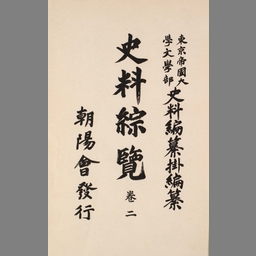 東京帝國大
學文學部史料編纂掛編纂
史料綜覽
卷二
朝陽會發行